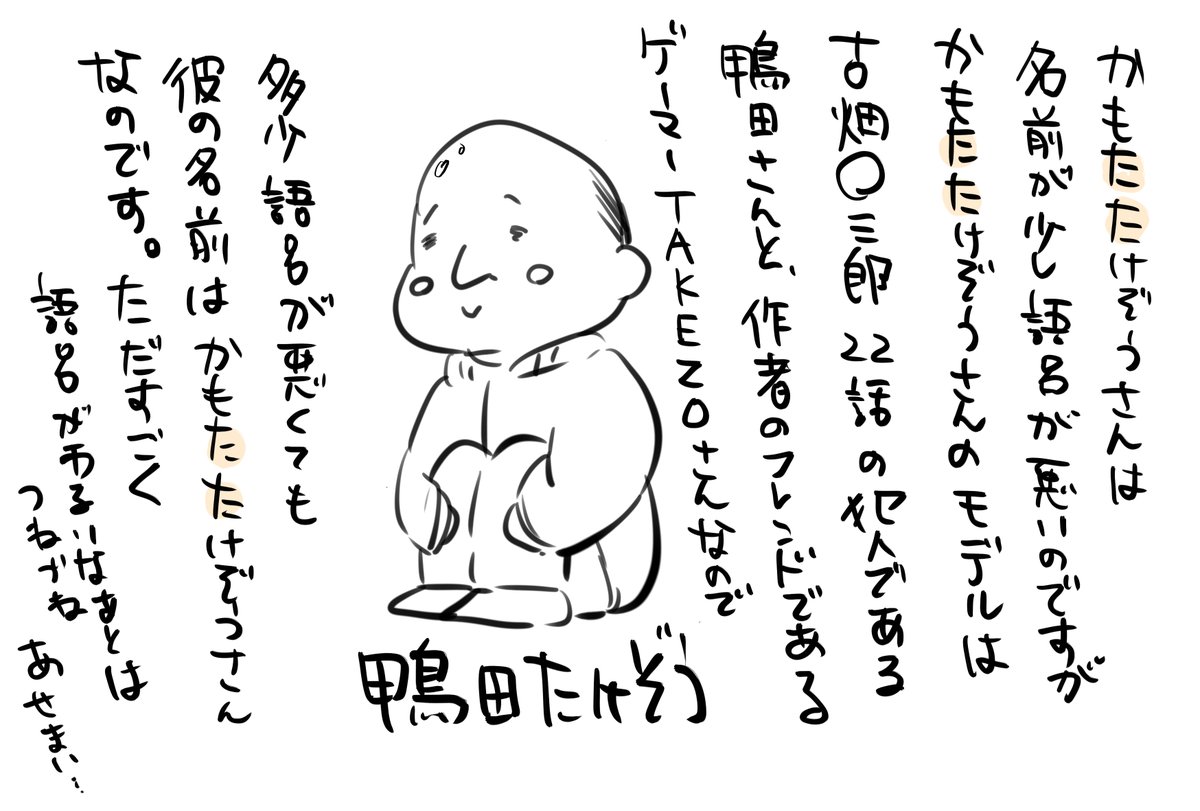 かもたたけぞうさんは
名前が少し語呂が悪いのですが
かもたたけぞうさんのモデルは
古畑〇三郎22話の犯人である
鴨田さんと、作者のフレンドである
ゲーマーTAKEZOさんなので
鴨田たけぞう
多少語呂が悪くても
彼の名前はかもたたけぞうさん
なのです。ただすごく
語呂がわるいなあとは
つねづね